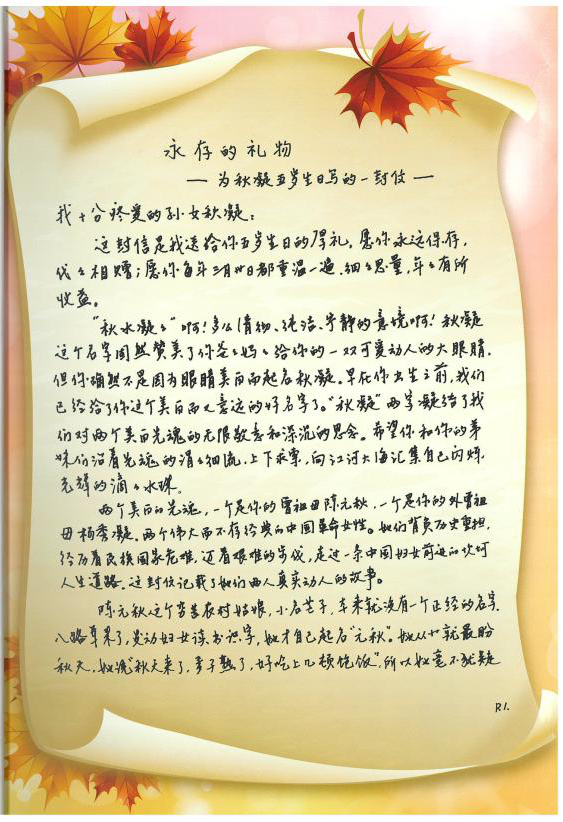 永存的礼物
— 为秋凝五岁生日写的一封信 —
我十分疼爱的孙女秋凝：
这封信是我送给你五岁生日的厚礼，愿你永远保存，
代々相赠；愿你每年三月廿日都重温一遍，细々思量，年々有所
收益。
“秋水凝々”啊！多么清彻、纯洁、宁静的意境啊！秋凝
这个名字固然赞美了你爸々妈々给你的一双可爱动人的大眼睛，
但你确然不是因为眼睛美而起名秋凝。早在你出生之前，我们
已经给了你这个美而又意远的好名字了。“秋凝”两字凝结了我
们对两个美的先魂的无限敬意和深沉的思念。希望你和你的弟
妹们沿着先魂的涓々细流，上下求索，向江河大海汇集自己闪烁
光辉的滴々水珠。
两个美的先魂，一个是你的曾祖母陈元秋，一个是你的外曾祖
母杨秀凝。两个伟大而不存经典的中国革命女性。她们背负历史重担，
经历着民族国家危难，迈着艰难的步伐，走过一条中国妇女前进的坎坷
人生道路。这封信记载了她们两人真实动人的故事。
陈元秋这个农村姑娘，小名苦子，本来就没有一个正经的名字，
八路军来了，发动妇女读书识字，她才自己起名“元秋”。她从小就最盼
秋天，她说“秋天来了，枣子熟了，好吃上几顿饱饭”，所以她毫不犹疑
P.1.